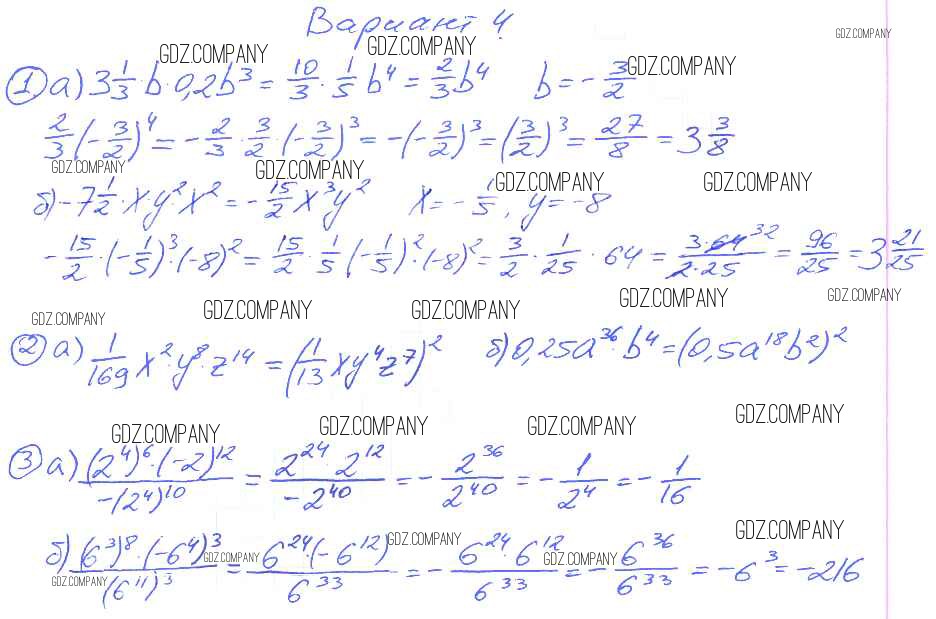 Вариант 4
GDZ.COMPANY GDZ.COMPANY GDZ.COMPANY
① а) 3 1/3 · b · 0,2b³ = 10/3 · 1/5 b⁴ = 2/3 b⁴ b = - 3/2 GDZ.COMPANY
2/3 (- 3/2)⁴ = - 2/3 · 3/2 · (- 3/2)³ = -(- 3/2)³ = (3/2)³ = 27/8 = 3 3/8
GDZ.COMPANY GDZ.COMPANY GDZ.COMPANY GDZ.COMPANY
б) -7 1/2 · x · y² · x² = - 15/2 x³y² x = - 1/5, y = -8
- 15/2 · (- 1/5)³ · (-8)² = 15/2 · 1/5 (- 1/5)² · (-8)² = 3/2 · 1/25 · 64 = 3·64 32/2·25 = 96/25 = 3 21/25
GDZ.COMPANY GDZ.COMPANY GDZ.COMPANY GDZ.COMPANY GDZ.COMPANY
② а) 1/169 x² · y⁸ · z¹⁴ = (1/13 xy⁴z⁷)² б) 0,25a³⁶ · b⁴ = (0,5a¹⁸b²)²
GDZ.COMPANY GDZ.COMPANY GDZ.COMPANY GDZ.COMPANY
③ а) (2⁴)⁶ · (-2)¹² / -(2⁴)¹⁰ = 2²⁴ · 2¹² / -2⁴⁰ = - 2³⁶/2⁴⁰ = - 1/2⁴ = - 1/16
GDZ.COMPANY GDZ.COMPANY GDZ.COMPANY GDZ.COMPANY
б) (6³)⁸ · (-6⁴)³ / (6¹¹)³ = 6²⁴ · (-6¹²) / 6³³ = - 6²⁴ · 6¹² / 6³³ = - 6³⁶/6³³ = -6³ = -216
GDZ.COMPANY